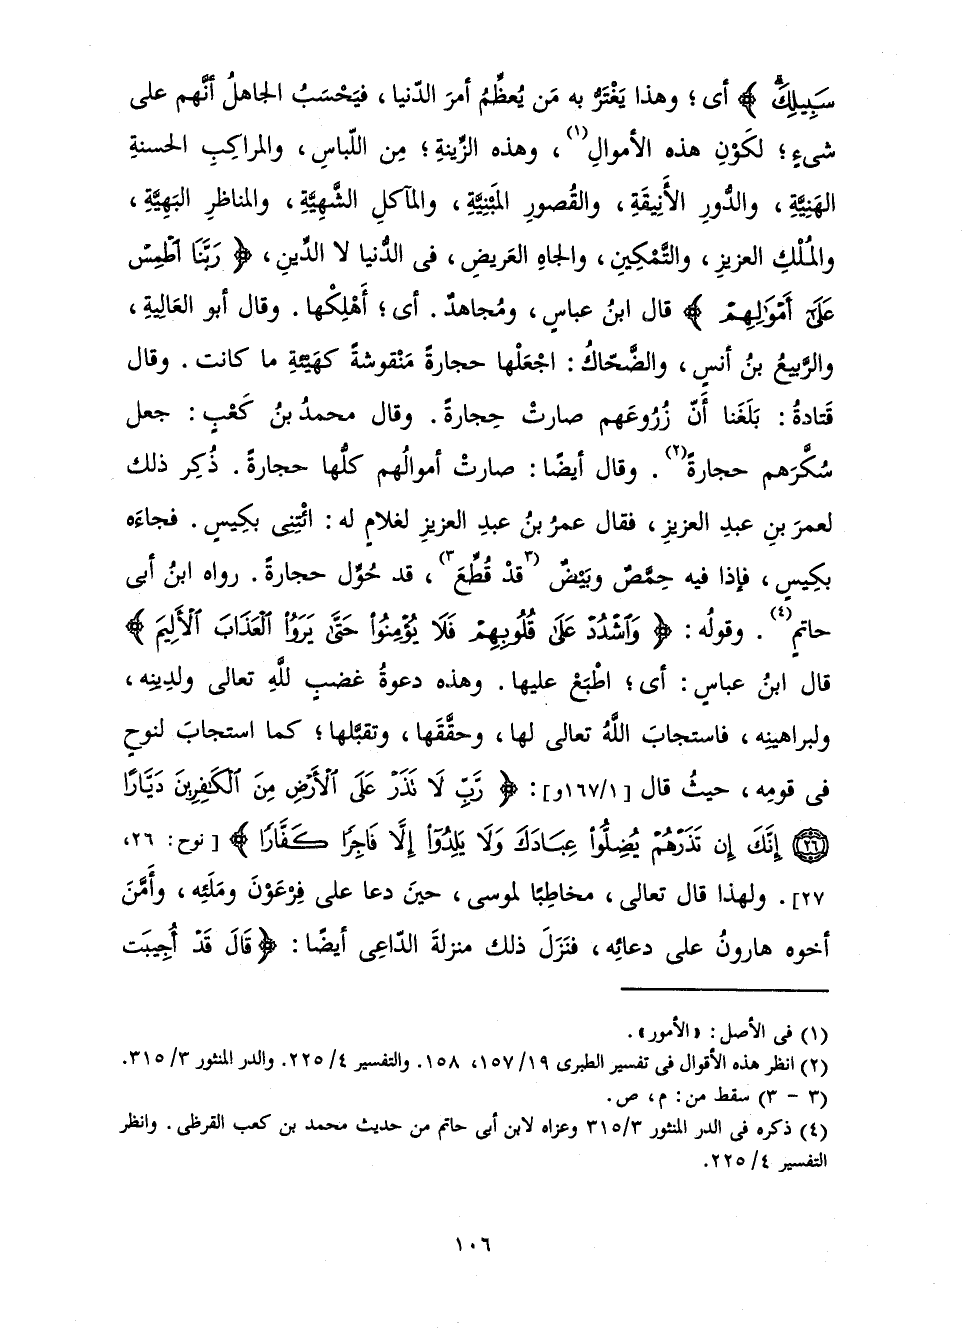 سَبِيلِكَ ﴾ أى ؛ وهذا يَغْتَرُّ به مَن يُعظِّمُ أمرَ الدّنيا ، فيَحْسَبُ الجاهلُ أنَّهم على
شىءٍ ؛ لكَوْنِ هذه الأموالِ(١) ، وهذه الزِّينةِ ؛ مِن اللّباسِ ، والمراكِبِ الحسنةِ
الهَنِيَّةِ ، والدُّورِ الأَنِيقَةِ ، والقُصورِ المَبْنِيَّةِ ، والمآكلِ الشَّهِيَّةِ ، والمناظرِ البَهِيَّةِ ،
والمُلْكِ العزيزِ ، والتَّمْكِينِ ، والجاهِ العَريضِ ، فى الدُّنيا لا الدِّينِ ، ﴿ رَبَّنَا ٱطْمِسْ
عَلَىٰٓ أَمْوَٰلِهِمْ ﴾ قال ابنُ عباسٍ ، ومُجاهدٌ . أى ؛ أَهْلِكْها . وقال أبو العَالِيةِ ،
والرَّبيعُ بنُ أنسٍ ، والضَّحّاكُ : اجْعَلْها حجارةً مَنْقوشةً كهَيْئةِ ما كانت . وقال
قَتادةُ : بَلَغَنا أَنّ زُرُوعَهم صارتْ حِجارةً . وقال محمدُ بنُ كَعْبٍ : جعل
سُكَّرَهم حجارةً(٢) . وقال أيضًا : صارتْ أموالُهم كلُّها حجارةً . ذُكِر ذلك
لعمرَ بنِ عبدِ العزيزِ ، فقال عمرُ بنُ عبدِ العزيزِ لغلامٍ له : ائْتِنِى بكِيسٍ . فجاءَه
بكِيسٍ ، فإذا فيه حِمَّصٌ وبَيْضٌ (٣قدْ قُطِّعَ٣) ، قد حُوِّل حجارةً . رواه ابنُ أبى
حاتمٍ(٤) . وقولُه : ﴿ وَٱشْدُدْ عَلَىٰ قُلُوبِهِمْ فَلَا يُؤْمِنُوا۟ حَتَّىٰ يَرَوُا۟ ٱلْعَذَابَ ٱلْأَلِيمَ ﴾
قال ابنُ عباسٍ : أى ؛ اطْبَعْ عليها . وهذه دعوةُ غضبٍ للَّهِ تعالى ولدِينِه ،
ولبراهينِه ، فاستجابَ اللَّهُ تعالى لها ، وحقَّقَها ، وتقبَّلها ؛ كما استجابَ لنوحٍ
فى قومِه ، حيثُ قال [ ١/ ١٦٧و ] : ﴿ رَّبِّ لَا تَذَرْ عَلَى ٱلْأَرْضِ مِنَ ٱلْكَٰفِرِينَ دَيَّارًا
﴿٢٦﴾ إِنَّكَ إِن تَذَرْهُمْ يُضِلُّوا۟ عِبَادَكَ وَلَا يَلِدُوٓا۟ إِلَّا فَاجِرًا كَفَّارًا ﴾ [ نوح : ٢٦ ،
٢٧ ] . ولهذا قال تعالى ، مخاطِبًا لموسى ، حينَ دعا على فِرْعَوْنَ ومَلَئِه ، وأَمَّنَ
أخوه هارونُ على دعائِه ، فنَزَلَ ذلك منزلةَ الدّاعِى أيضًا : ﴿ قَالَ قَدْ أُجِيبَت
(١) فى الأصل : «الأمور» .
(٢) انظر هذه الأقوال فى تفسير الطبرى ١٩/ ١٥٧، ١٥٨. والتفسير ٤/ ٢٢٥. والدر المنثور ٣/ ٣١٥.
(٣ - ٣) سقط من : م ، ص .
(٤) ذكره فى الدر المنثور ٣/ ٣١٥ وعزاه لابن أبى حاتم من حديث محمد بن كعب القرظى . وانظر
التفسير ٤/ ٢٢٥.
١٠٦